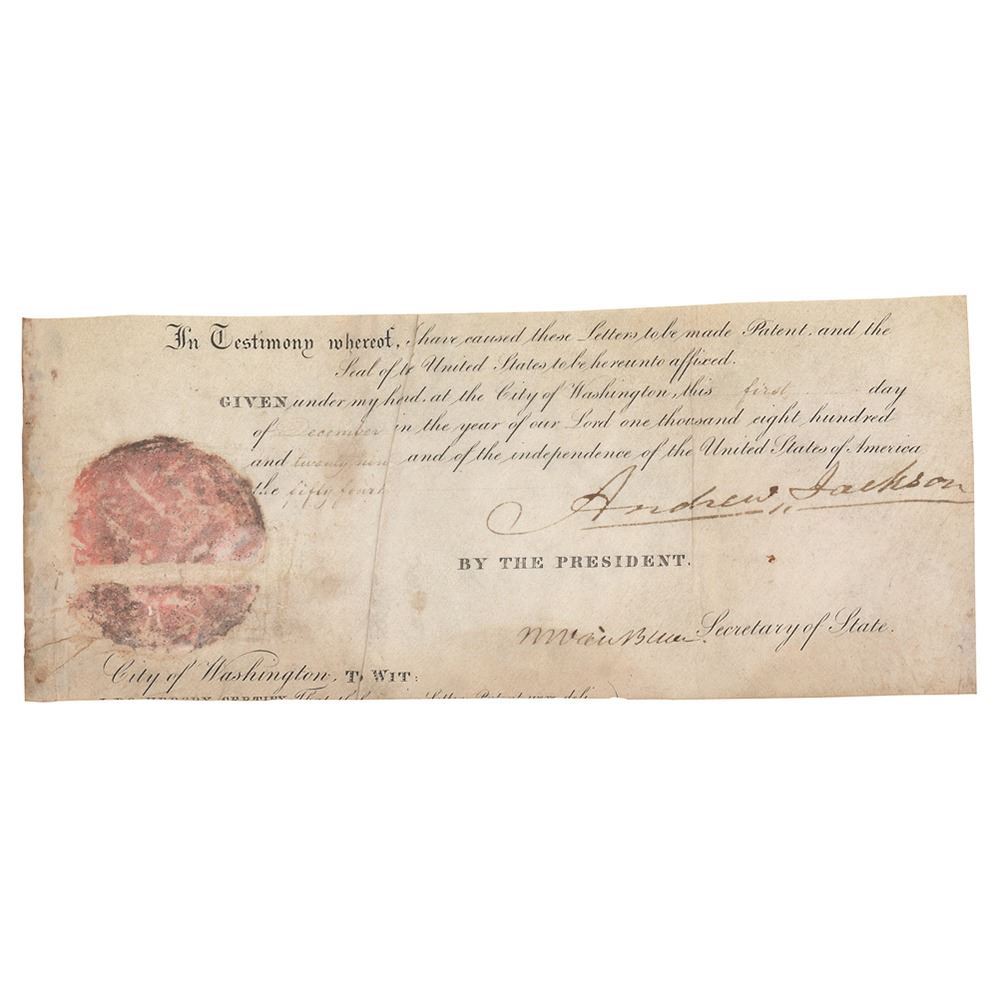 In Testimony whereof, I have caused these Letters to be made Patent, and the
Seal of te United States to be hereunto affixed.
GIVEN under my hand, at the City of Washington, this first day
of December in the year of our Lord one thousand eight hundred
and twenty nine and of the independence of the United States of America
the fifty fourth
Andrew Jackson
BY THE PRESIDENT.
M Van Buren Secretary of State.
City of Washington, To Wit:
I DO HEREBY CERTIFY, That the Letters Patent were